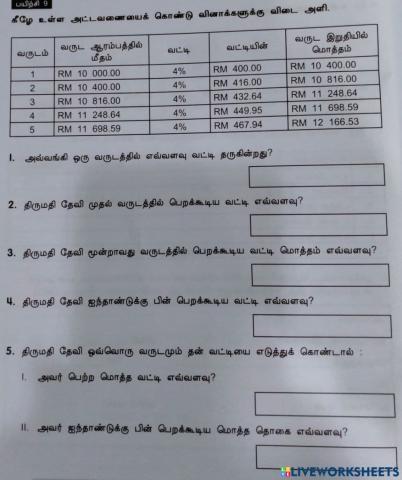 பயிற்சி 9
கீழே உள்ள அட்டவணையைக் கொண்டு வினாக்களுக்கு விடை அளி.
வருடம் வருட ஆரம்பத்தில் மீதம் வட்டி வட்டியின் வருட இறுதியில் மொத்தம்
1 RM 10 000.00 4% RM 400.00 RM 10 400.00
2 RM 10 400.00 4% RM 416.00 RM 10 816.00
3 RM 10 816.00 4% RM 432.64 RM 11 248.64
4 RM 11 248.64 4% RM 449.95 RM 11 698.59
5 RM 11 698.59 4% RM 467.94 RM 12 166.53
1. அவ்வங்கி ஒரு வருடத்தில் எவ்வளவு வட்டி தருகின்றது?
2. திருமதி தேவி முதல் வருடத்தில் பெறக்கூடிய வட்டி எவ்வளவு?
3. திருமதி தேவி மூன்றாவது வருடத்தில் பெறக்கூடிய வட்டி மொத்தம் எவ்வளவு?
4. திருமதி தேவி ஐந்தாண்டுக்கு பின் பெறக்கூடிய வட்டி எவ்வளவு?
5. திருமதி தேவி ஒவ்வொரு வருடமும் தன் வட்டியை எடுத்துக் கொண்டால் :
I. அவர் பெற்ற மொத்த வட்டி எவ்வளவு?
II. அவர் ஐந்தாண்டுக்கு பின் பெறக்கூடிய மொத்த தொகை எவ்வளவு?
LIVEWORKSHEETS